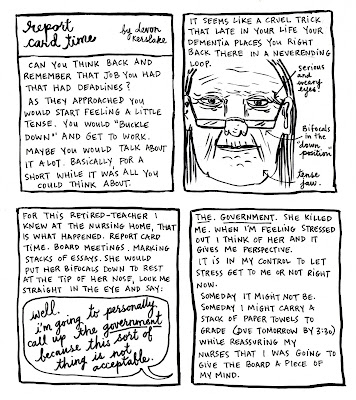 report
card time
by devon
kerslake
CAN YOU THINK BACK AND
REMEMBER THAT JOB YOU HAD
THAT HAD DEADLINES?
AS THEY APPROACHED YOU
WOULD START FEELING A LITTLE
TENSE. YOU WOULD "BUCKLE
DOWN" AND GET TO WORK.
MAYBE YOU WOULD TALK ABOUT
IT A LOT. BASICALLY FOR A
SHORT WHILE IT WAS ALL YOU
COULD THINK ABOUT.
IT SEEMS LIKE A CRUEL TRICK
THAT LATE IN YOUR LIFE YOUR
DEMENTIA PLACES YOU RIGHT
BACK THERE IN A NEVERENDING
LOOP.
serious
and
weary
eyes
Bifocals
in the
"down
position"
tense
jaw.
FOR THIS RETIRED-TEACHER I
KNEW AT THE NURSING HOME, THAT
IS WHAT HAPPENED. REPORT CARD
TIME. BOARD MEETINGS. MARKING
STACKS OF ESSAYS. SHE WOULD
PUT HER BIFOCALS DOWN TO REST
AT THE TIP OF HER NOSE, LOOK ME
STRAIGHT IN THE EYE AND SAY:
well.
i'm going to personally
call up the government
because this sort of
thing is not
acceptable.
THE. GOVERNMENT. SHE KILLED
ME. WHEN I'M FEELING STRESSED
OUT I THINK OF HER AND IT
GIVES ME PERSPECTIVE.
IT IS IN MY CONTROL TO LET
STRESS GET TO ME OR NOT RIGHT
NOW.
SOMEDAY IT MIGHT NOT BE.
SOMEDAY I MIGHT CARRY A
STACK OF PAPER TOWELS TO
GRADE (DUE TOMORROW BY 3:30)
WHILE REASSURING MY
NURSES THAT I WAS GOING TO
GIVE THE BOARD A PIECE OF
MY MIND.